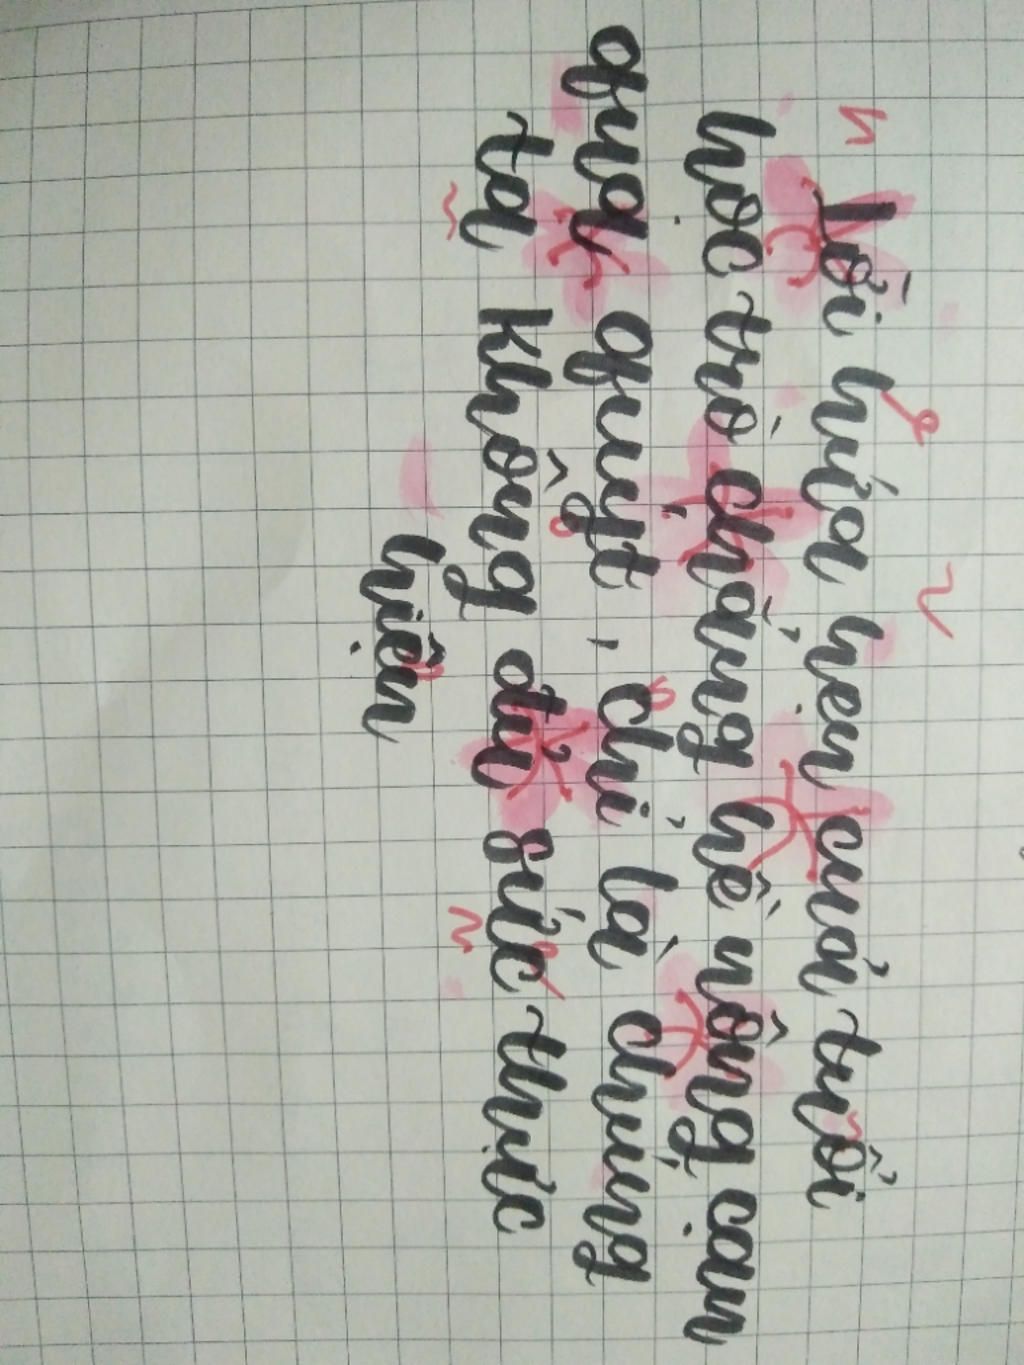 Lời hứa hẹn của tuổi
học trò chẳng hề nông cạn
qua quýt, chỉ là chúng
ta không đủ sức thực
hiện